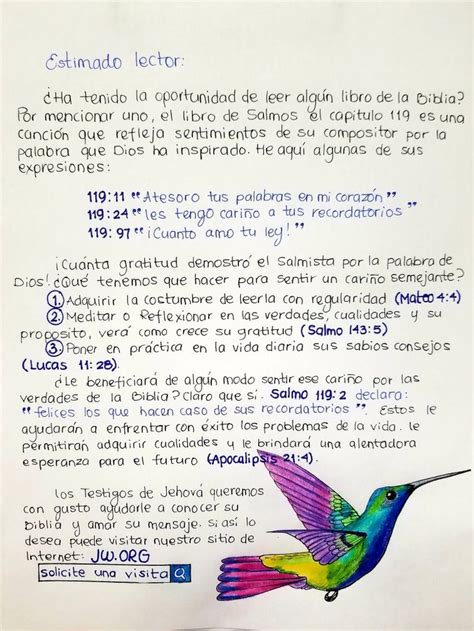 Estimado lector:
¿Ha tenido la oportunidad de leer algún libro de la Biblia?
Por mencionar uno, el libro de Salmos el capitulo 119 es una
canción que refleja sentimientos de su compositor por la
palabra que Dios ha inspirado. He aquí algunas de sus
expresiones:
119:11 “Atesoro tus palabras en mi corazón”
119:24 “les tengo cariño a tus recordatorios”
119:97 “¡Cuanto amo tu ley!”
¡Cuánta gratitud demostró el Salmista por la palabra de
Dios! ¿Qué tenemos que hacer para sentir un cariño semejante?
1. Adquirir la costumbre de leerla con regularidad (Mateo 4:4)
2. Meditar o Reflexionar en las verdades, cualidades y su
proposito, verá como crece su gratitud (Salmo 143:5)
3. Poner en práctica en la vida diaria sus sabios consejos
(Lucas 11:28).
¿Le beneficiará de algún modo sentir ese cariño por las
verdades de la Biblia? Claro que sí. Salmo 119:2 declara:
“felices los que hacen caso de sus recordatorios”. Estos le
ayudarán a enfrentar con éxito los problemas de la vida. le
permitirán adquirir cualidades y le brindará una alentadora
esperanza para el futuro (Apocalipsis 21:4).
los Testigos de Jehová queremos
con gusto ayudarle a conocer su
Biblia y amar su mensaje. Si así lo
desea puede visitar nuestro sitio de
Internet: JW.ORG
solicite una visita